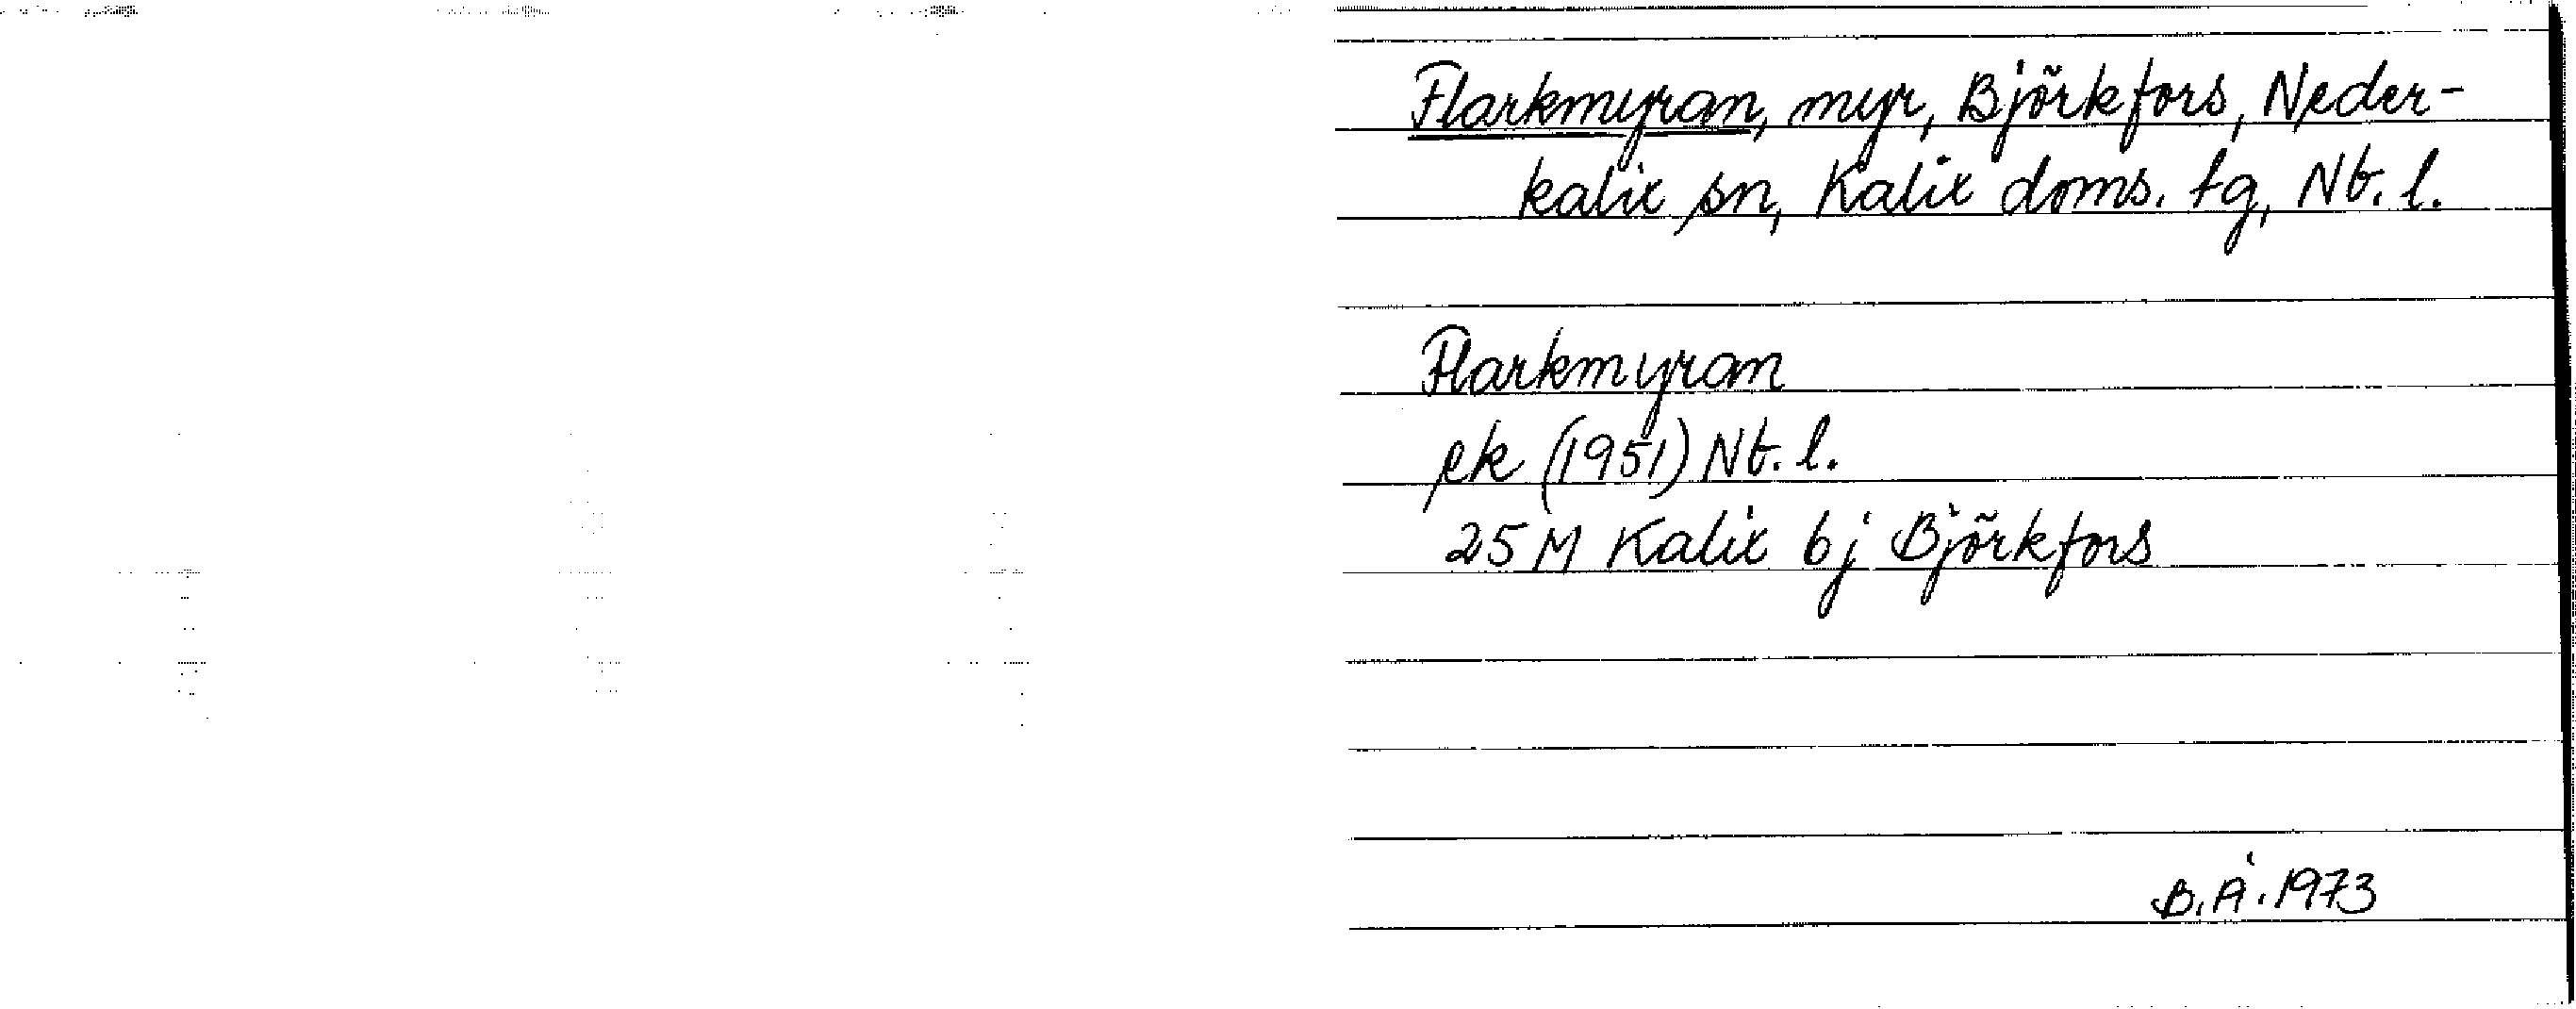 Flarkmyran, myr, Björkfors, Neder-
kalix sn, Kalix doms. tg, Nb. l.
Flarkmyran
ek (1951) Nb. l.
25 M Kalix bj Björkfors
B.Å. 1973